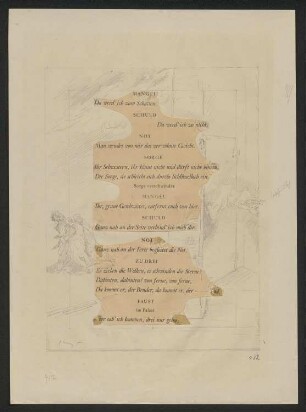 MANGEL
Da werd' ich zum Schatten.
SCHULD
Da werd' ich zu nicht.
NOT
Man wendet von mir das verwöhnte Gesicht.
SORGE
Ihr Schwestern, ihr könnt nicht und dürft nicht hinein.
Die Sorge, sie schleicht sich durchs Schlüsselloch ein.
Sorge verschwindet
MANGEL
Ihr, graue Geschwister, entfernt euch von hier.
SCHULD
Ganz nah an der Seite verbind' ich mich dir.
NOT
Ganz nah an der Ferse begleitet die Not.
ZU DREI
Es ziehen die Wolken, es schwinden die Sterne!
Dahinten, dahinten! von ferne, von ferne,
Da kommt er, der Bruder, da kommt er, der
FAUST
im Palast
sah' ich kommen, drei nur gehn